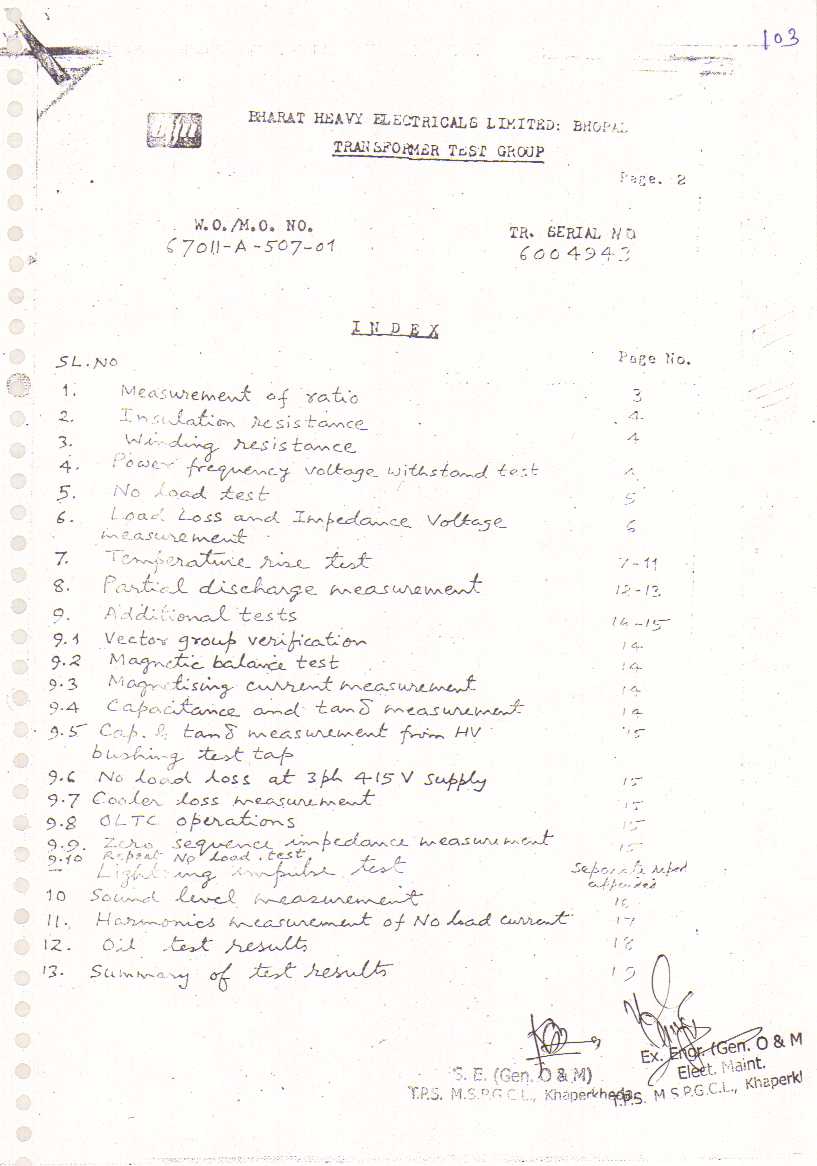 103
BHARAT HEAVY ELECTRICALS LIMITED: BHOPAL
TRANSFORMER TEST GROUP
Page. 2
W.O./M.O. NO.
67011-A-507-01
TR. SERIAL NO
6004943
INDEX
SL.NO Page No.
1. Measurement of ratio 3
2. Insulation resistance 4
3. Winding resistance 4
4. Power frequency voltage withstand test 4
5. No Load test 5
6. Load Loss and Impedance Voltage 6
measurement
7. Temperature rise test 7-11
8. Partial discharge measurement 12-13
9. Additional tests 14-15
9.1 Vector group verification 14
9.2 Magnetic balance test 14
9.3 Magnetising current measurement 14
9.4 Capacitance and tanδ measurement 14
9.5 Cap. & tanδ measurement from HV 15
bushing test tap
9.6 No load loss at 3ph 415V supply 15
9.7 Cooler loss measurement 15
9.8 OLTC operations 15
9.9. Zero sequence impedance measurement 15
9.10 Repeat No Load test.
— Lightning impulse test Separate report
appended
10 Sound level measurement 16
11. Harmonics measurement of No load current 17
12. Oil test results 18
13. Summary of test results 19
S. E. (Gen. O & M)
T.P.S. M.S.P.G.C.L., Khaperkheda
Ex. Engr. (Gen. O & M
Elect. Maint.
T.P.S. M.S.P.G.C.L., Khaperkh